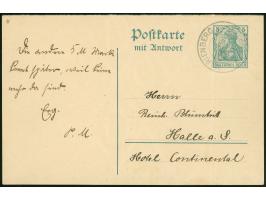 Postkarte
mit Antwort
Die andern 5 M Mark
kommt später, weil keine
mehr da sind.
Eug.
P. M
Herrn
Reinh.
Halle a. S.
Hotel Continental